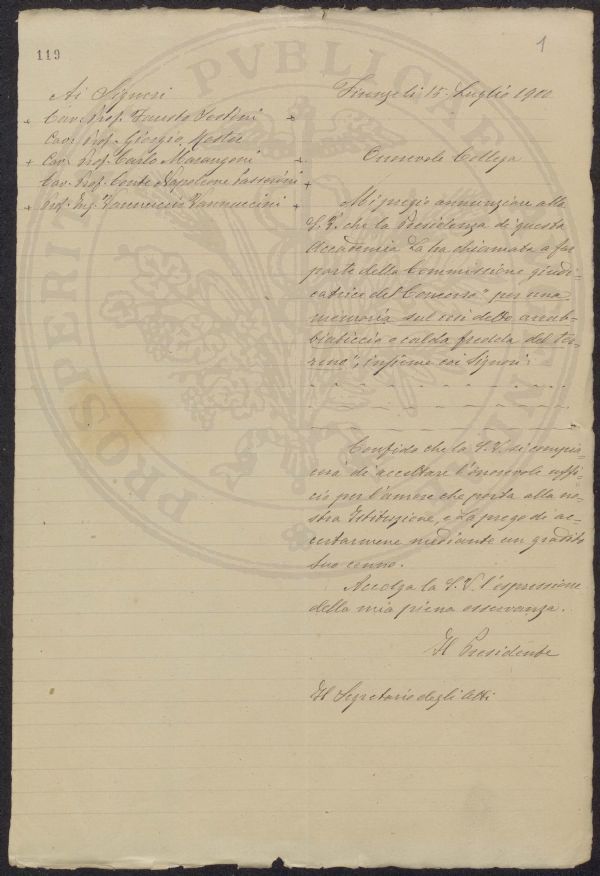 119
1
Ai Signori
Cav. Prof. Fausto Sestini
Cav. Prof. Giorgio
Cav. Prof. Carlo Marangoni
Cav. Prof. Conte Napoleone Passerini
Prof. Ing. Vannuccini
Firenze li 15 Luglio 1900
Onorevole Collega
Mi pregio annunziare alla
S. V. che la Presidenza di questa
Accademia La ha chiamata a far
parte della Commissione giudi-
catrice del Concorso "per una
memoria sul così detto arrab-
biaticcio o calda fredda del ter-
reno", insieme coi Signori:
Confido che la S. V. si compia-
cerà di accettare l'onorevole uffi-
cio per l'amore che porta alla no-
stra Istituzione, e La prego di ac-
certarmene mediante un gradito
suo cenno.
Accolga la S. V. l'espressione
della mia piena osservanza.
Il Presidente
Il Segretario degli Atti
PROSPERI
PVBLICAE